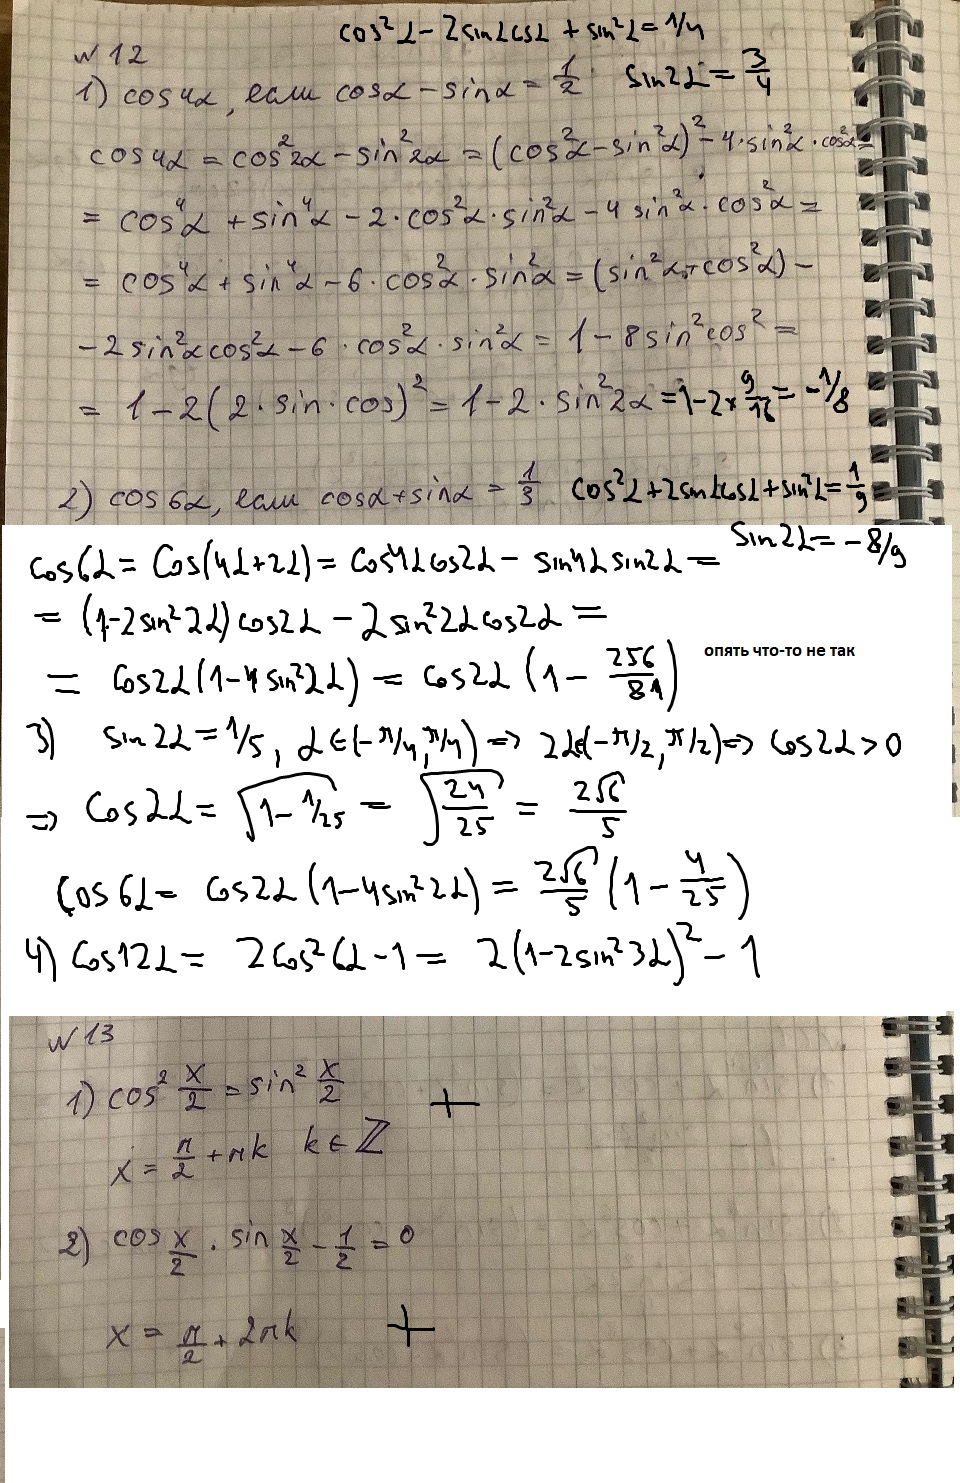 cos²α - 2sinαcosα + sin²α = 1/4
N 12
1) cos4α, если cosα - sinα = 1/2 sin2α = 3/4
cos4α = cos²2α - sin²2α = (cos²α - sin²α)² - 4·sin²α·cos²α =
= cos⁴α + sin⁴α - 2·cos²α·sin²α - 4 sin²α·cos²α =
= cos⁴α + sin⁴α - 6·cos²α·sin²α = (sin²α + cos²α) -
- 2sin²αcos²α - 6·cos²α·sin²α = 1 - 8sin²cos² =
= 1 - 2(2·sin·cos)² = 1 - 2·sin²2α = 1 - 2×9/16 = -1/8
2) cos6α, если cosα + sinα = 1/3 cos²α + 2sinαcosα + sin²α = 1/9
sin2α = -8/9
cos6α = cos(4α+2α) = cos4αcos2α - sin4αsin2α =
= (1-2sin²2α)cos2α - 2sin²2αcos2α =
= cos2α(1-4sin²2α) = cos2α(1 - 256/81) опять что-то не так
3) sin2α = 1/5, α∈(-π/4, π/4) => 2α∈(-π/2, π/2) => cos2α > 0
=> cos2α = √(1-1/25) = √(24/25) = 2√6/5
cos6α = cos2α(1-4sin²2α) = 2√6/5 (1 - 4/25)
4) cos12α = 2cos²6α - 1 = 2(1-2sin²3α)² - 1
N 13
1) cos² x/2 = sin² x/2 +
x = π/2 + πk k ∈ ℤ
2) cos x/2 · sin x/2 - 1/2 = 0
x = π/2 + 2πk +